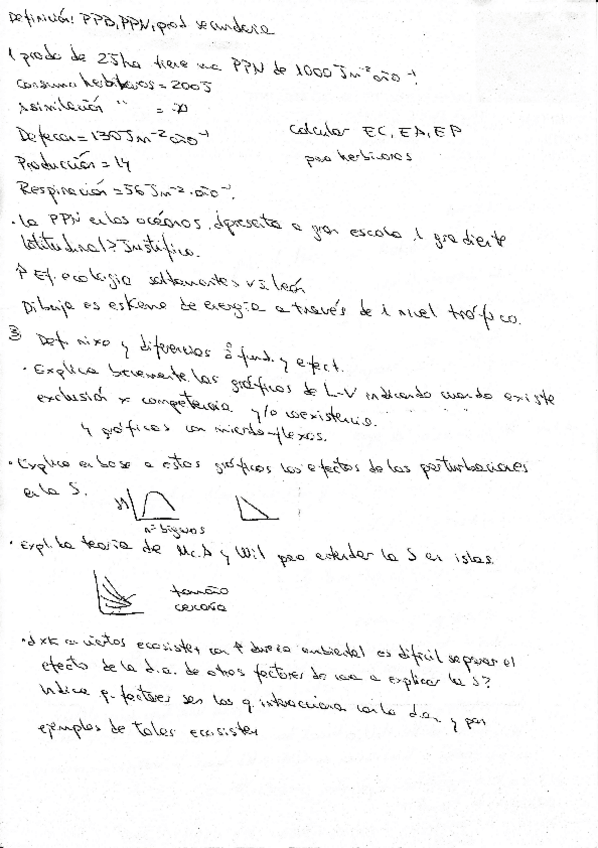 Definición: PPB, PPN, prod secundaria
1 prado de 25ha tiene una PPN de 1000 J m⁻² año⁻¹.
Consumo herbívoros = 200J
Asimilación " = 70
Defecan = 130 J m⁻² año⁻¹
Calcular EC, EA, EP
para herbívoros
Producción = 14
Respiración = 56 J m⁻² . año⁻¹.
· La PPN en los océanos, ¿presenta a gran escala 1 gradiente
latitudinal? Justifica.
Ef. ecología saltamontes vs león
Dibuja es eskema de energía a través de 1 nivel trófico.
3 Def. nixo y diferencias fund. y efect.
· Explica brevemente los gráficos de L-V indicando cuando existe
exclusión x competencia y/o coexistencia.
4 gráficos con
· Explica en base a estos gráficos los efectos de las perturbaciones
en la S.
nº
· Expl. la teoría de Mc.A y Wil para entender la S en islas.
tamaño
cercanía
· ¿d xk en ciertos ecosistem con ↑ dureza ambiental es difícil separar el
efecto de la d.a. de otros factores de cara a explicar la S?
Indica q. factores son los q. interaccionan con la d.a. y pon
ejemplos de tales ecosistem